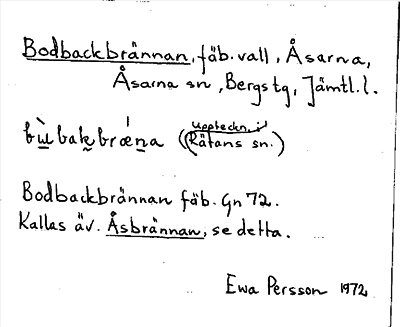 Bodbackbrännan, fäb.vall, Åsarna,
Åsarna sn, Bergs tg, Jämtl.l.
bù̲bak̬bræ´n̲a (uppteckn. i Rätans sn.)
Bodbackbrännan fäb. Gn 72.
Kallas äv. Åsbrännan, se detta.
Ewa Persson 1972